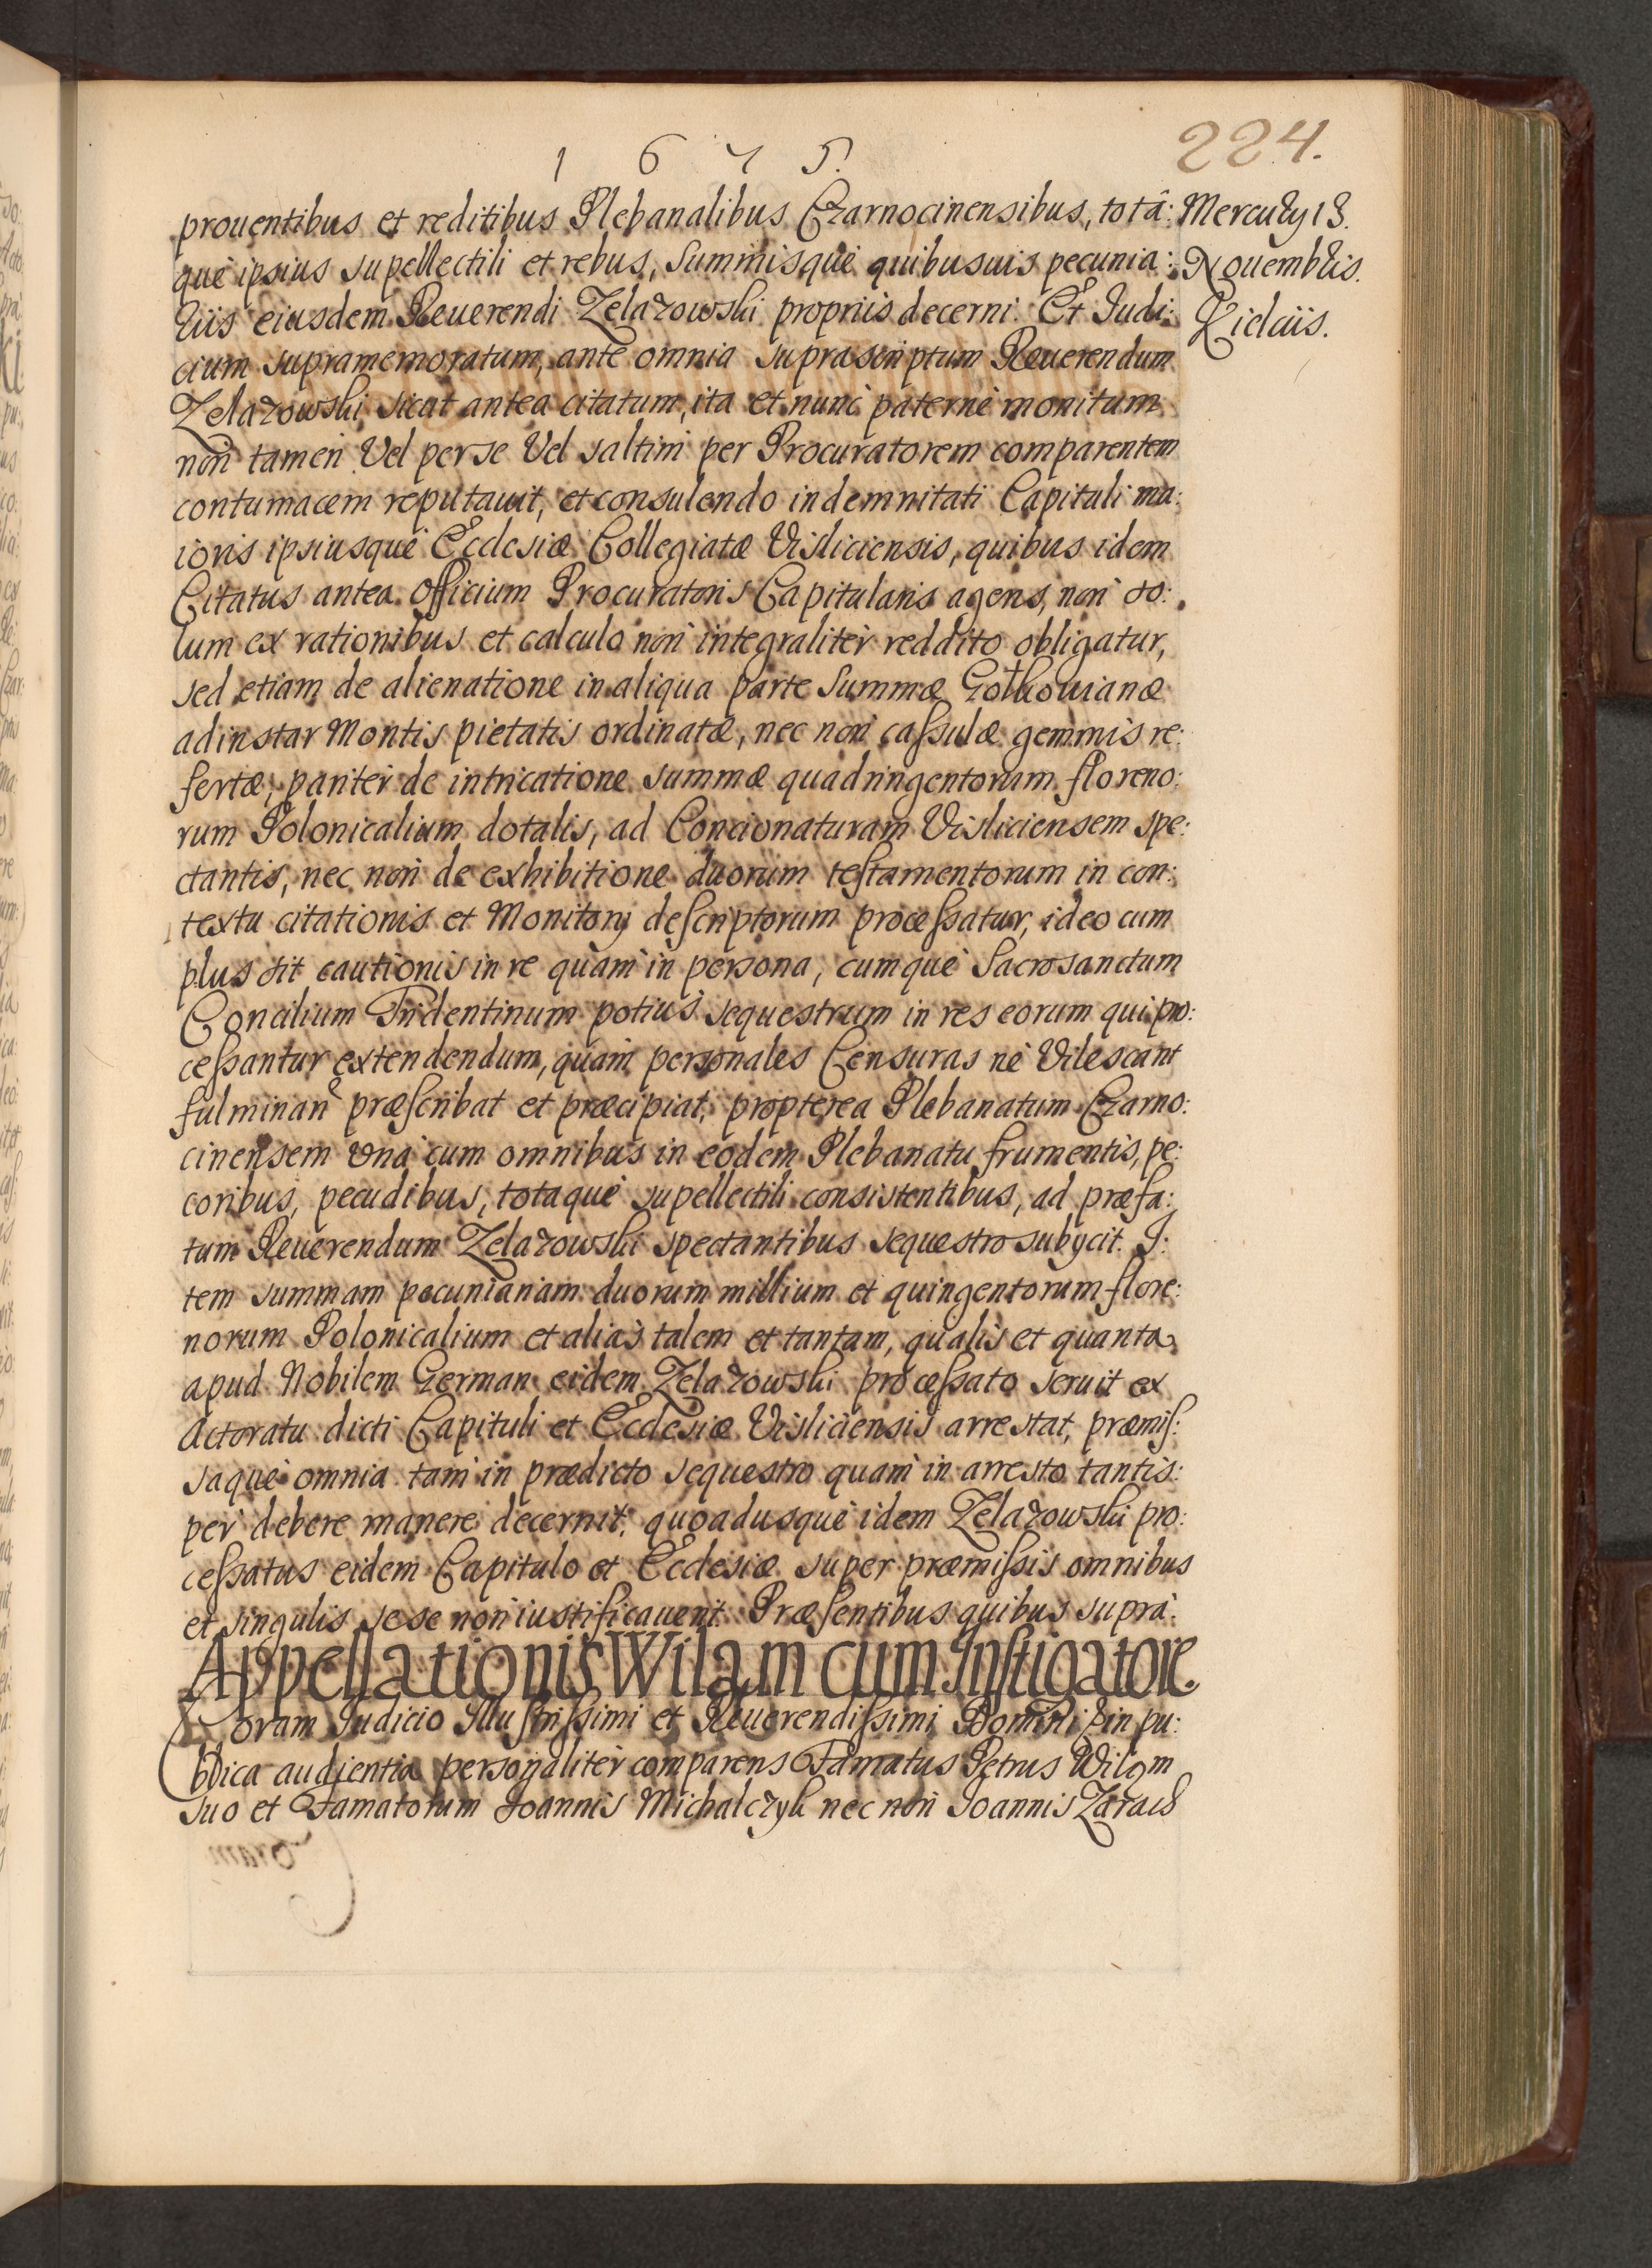 1675.
224.
prouentibus et reditibus Plebanalibus Czarnocinensibus, totâ:
què ipsius supellectili et rebus, Summisquè quibusuis pecunia:
riis eiusdem Reuerendi Zelazowski propriis decerni. Et Iudi:
cium supramemoratum, ante omnia suprascriptum Reuerendum
Zelazowski, sicut antea citatum, ita et nunc paternè monitum
non tamen Vel per se Vel saltim per Procuratorem comparentem
contumacem reputauit, et consulendo indemnitati Capituli ma:
ioris ipsiusquè Ecclesiæ Collegiatæ Visliciensis, quibus idem
Citatus antea Officium Procuratoris Capitularis agens, non so:
lum ex rationibus et calculo non integraliter reddito obligatur,
sed etiam de alienatione in aliqua parte Summæ Gothowianæ
adinstar Montis pietatis ordinatæ, nec non cassulæ gemmis re:
fertæ, pariter de intricatione summæ quadringentorum floreno:
rum Polonicalium dotalis, ad Concionaturam Visliciensem spe:
ctantis, nec non de exhibitione duorum testamentorum in con:
textu citationis et Monitorij descriptorum processatur, ideo cum
plus sit cautionis in re quam in persona, cumquè Sacrosanctum
Concilium Tridentinum potius sequestrum in res eorum qui pro:
cessantur extendendum, quàm personales Censuras nè Vilescant
fulminan præscribat et præcipiat, propterea Plebanatum Czarno:
cinensem Vnà cum omnibus in eodem Plebanatu frumentis, pe:
coribus, pecudibus, totaquè supellectili consistentibus, ad præfa:
tum Reuerendum Zelazowski spectantibus sequestro subycit. I:
tem summam pecuniariam duorum millium et quingentorum flore:
norum Polonicalium et aliàs talem et tantam, qualis et quanta
apud Nobilem German eidem Zelazowski processato seruit ex
Actoratu dicti Capituli et Ecclesiæ Visliciensis arrestat, præmis:
saquè omnia tam in prædicto sequestro quam in arresto tantis:
per debere manere decernit, quoadusquè idem Zelazowski pro:
cessatus eidem Capitulo et Ecclesiæ super præmissis omnibus
et singulis sese non iustificauerit. Præsentibus quibus suprà.
Mercurij 13.
Nouembris.
Kielciis.
Appellationis Wilam cum Instigatore
Coram Iudicio Illustrissimi et Reuerendissimi Domini in pu:
blica audientia personaliter comparens Famatus Petrus Wilam
suo et Famatorum Ioannis Michalczyk nec non Ioannis Zaraid